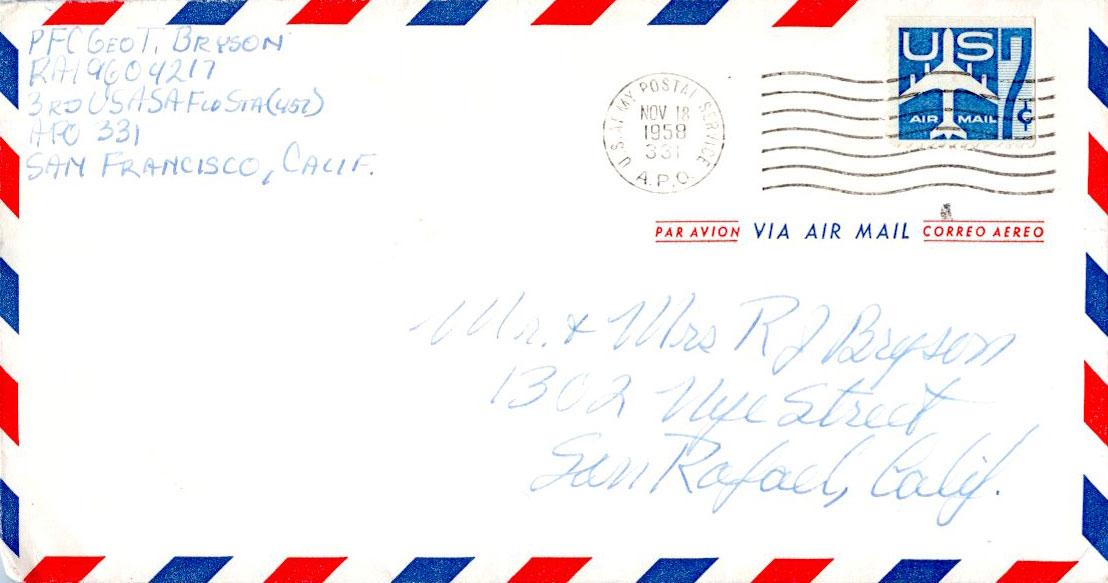 PFC GEO T. BRYSON
RA19604217
3RD USASA FLD STA (452)
APO 331
SAN FRANCISCO, CALIF.
U.S. ARMY POSTAL SERVICE
NOV 18
1958
331
A.P.O.
US
7¢
AIR MAIL
PAR AVION VIA AIR MAIL CORREO AEREO
Mr. & Mrs R J Bryson
1302 Nye Street
San Rafael, Calif.